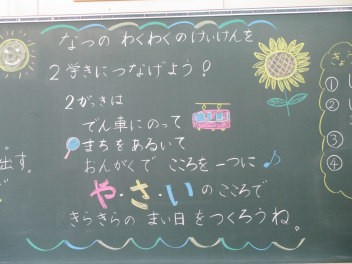 なつの わくわくのけいけんを
2学きにつなげよう!
2がっきは
でん車にのって
まちをあるいて
おんがくで こころを一つに
や・さ・いのこころで
きらきらの まい日をつくろうね。
出す。
きょ
①
②
③
④